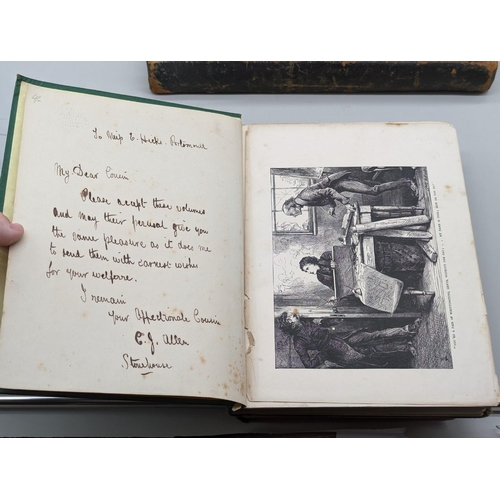 To Miss E. Hicks.
My Dear Cousin
Please accept these volumes
and may their perusal give you
the same pleasure as it does me
to send them with earnest wishes
for your welfare.
I remain
your Affectionate Cousin
C. J. Allen
Stonehouse